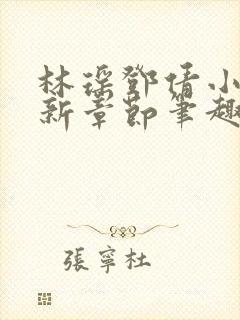 林瑶鄧倩小
新章節筆趣
張寧杜